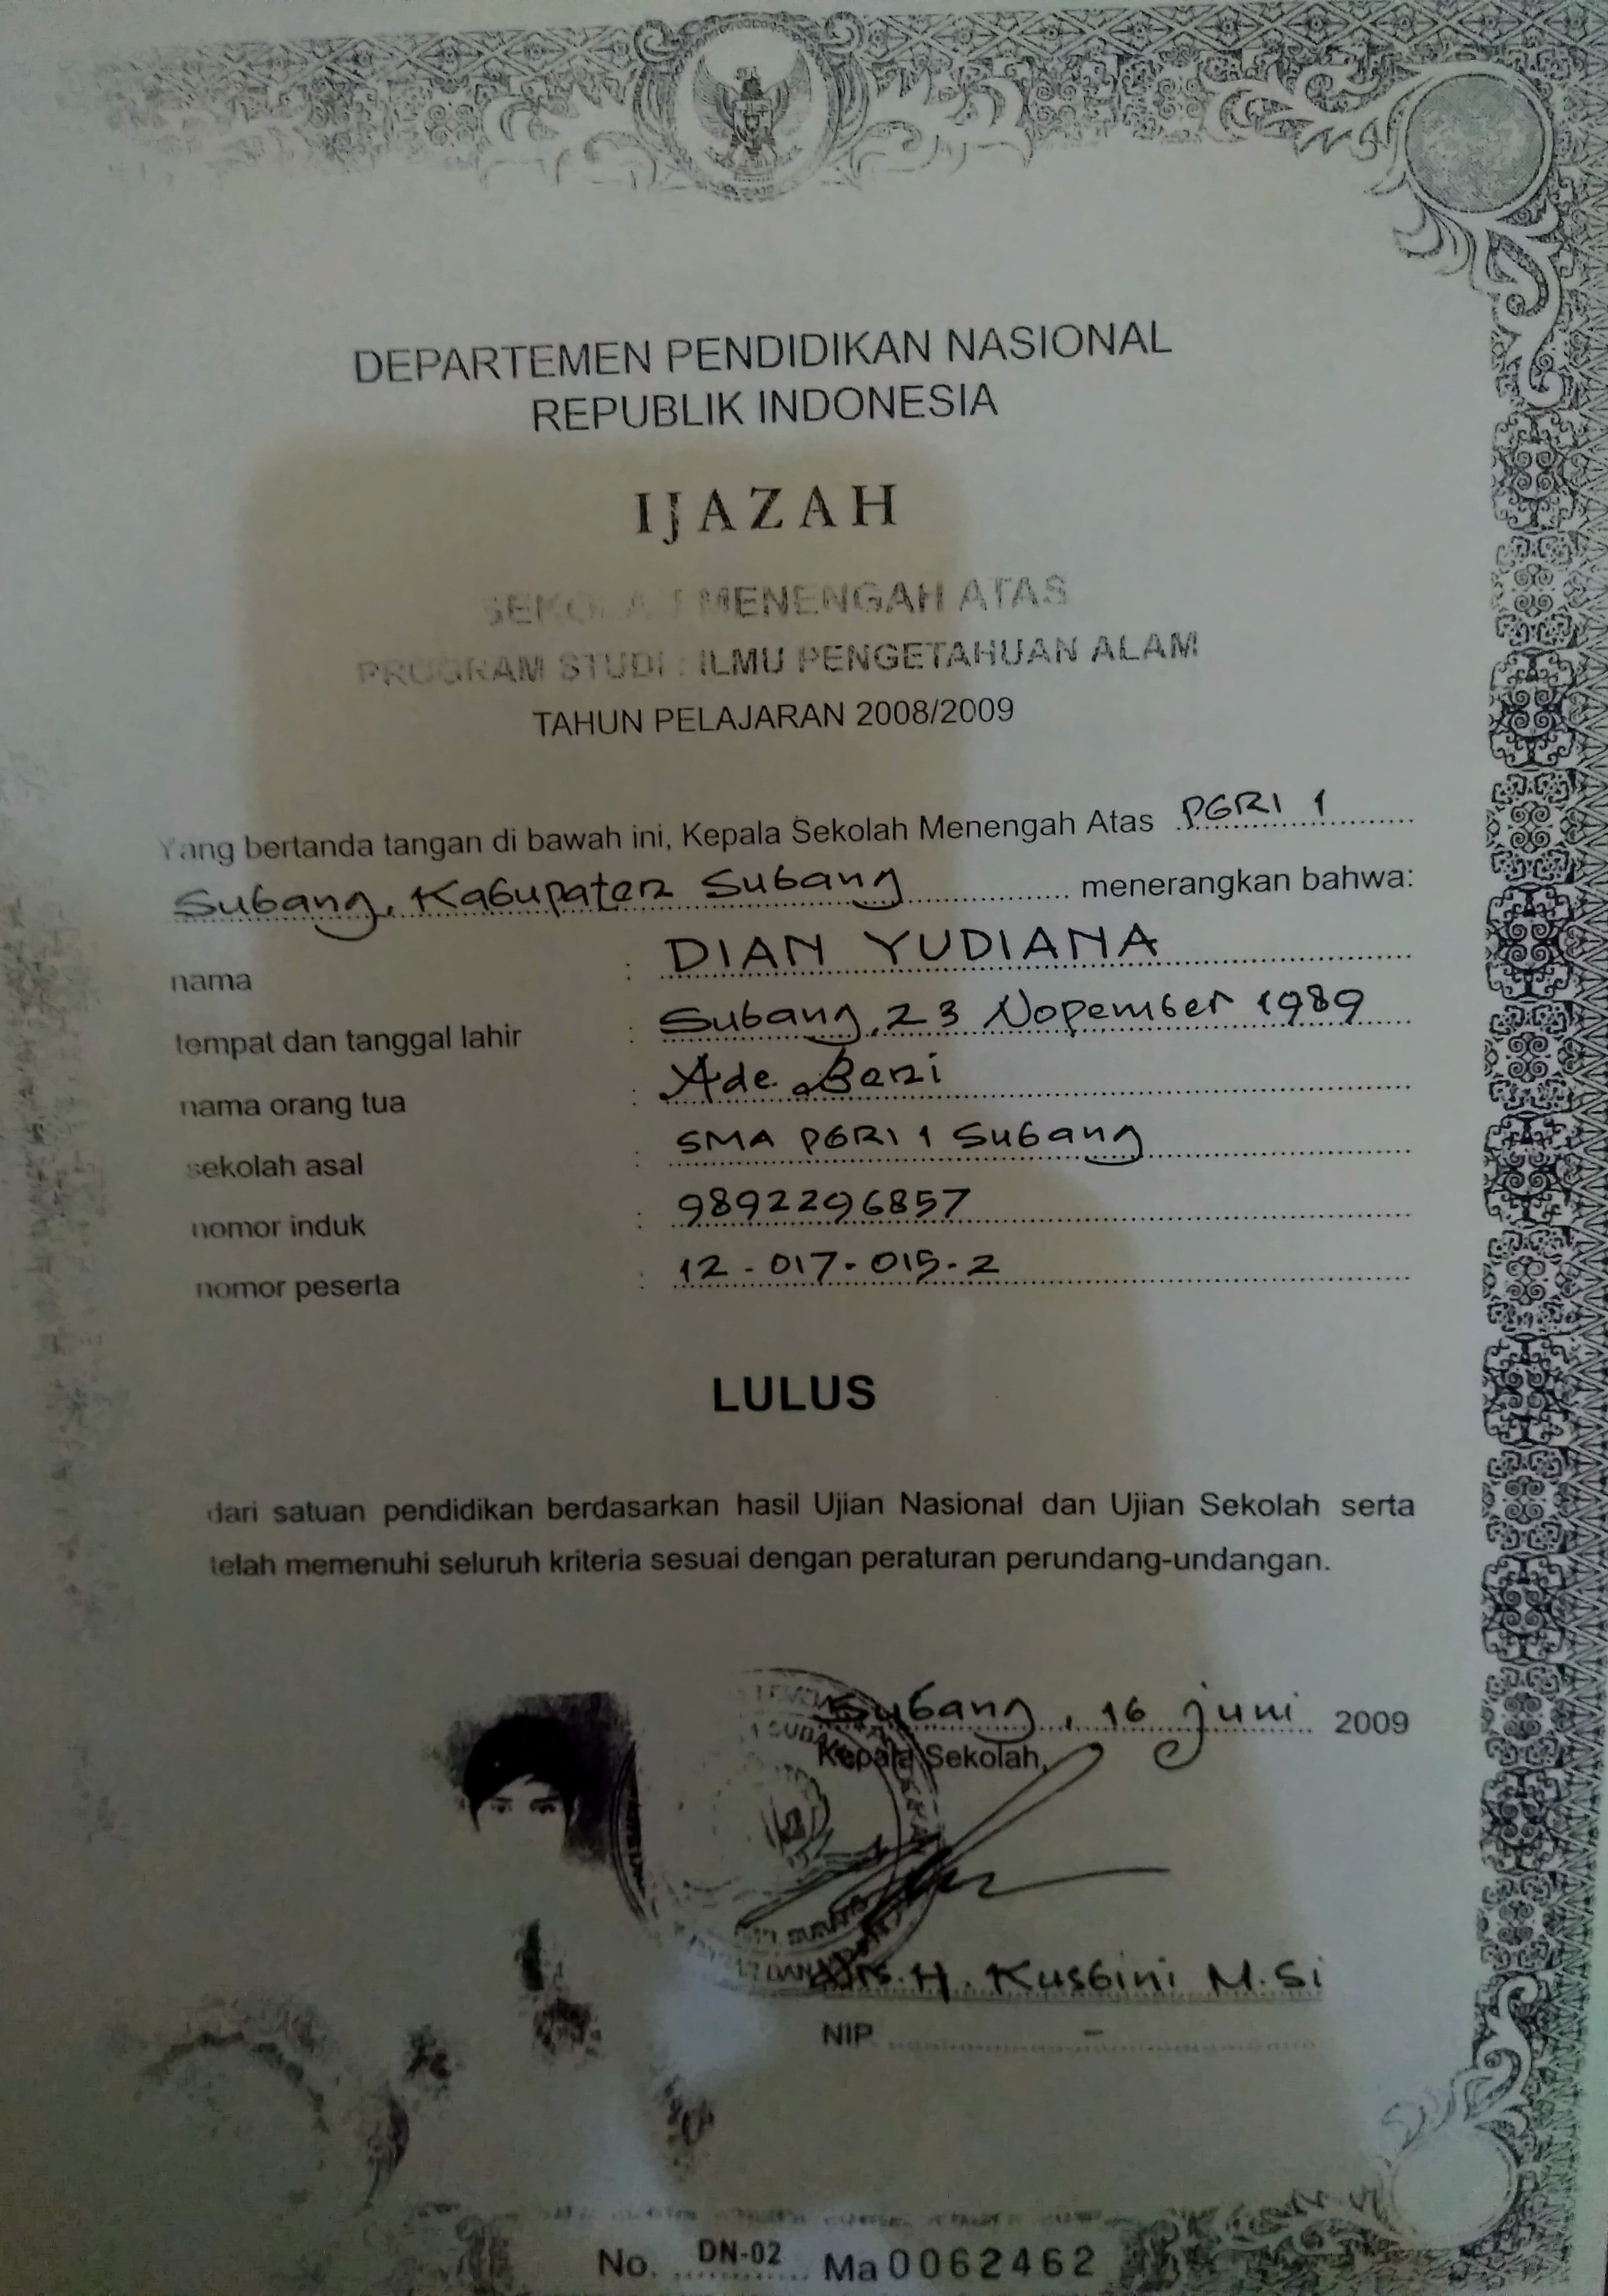 DEPARTEMEN PENDIDIKAN NASIONAL
REPUBLIK INDONESIA
IJAZAH
SEKOLAH MENENGAH ATAS
PROGRAM STUDI : ILMU PENGETAHUAN ALAM
TAHUN PELAJARAN 2008/2009
Yang bertanda tangan di bawah ini, Kepala Sekolah Menengah Atas PGRI 1
Subang, Kabupaten Subang menerangkan bahwa:
nama : DIAN YUDIANA
tempat dan tanggal lahir : Subang, 23 Nopember 1989
nama orang tua : Ade Beni
sekolah asal : SMA PGRI 1 Subang
nomor induk : 9892296857
nomor peserta : 12-017-015-2
LULUS
dari satuan pendidikan berdasarkan hasil Ujian Nasional dan Ujian Sekolah serta
telah memenuhi seluruh kriteria sesuai dengan peraturan perundang-undangan.
Subang, 16 juni 2009
Kepala Sekolah,
Drs. H. Kusbini M.Si
NIP. -
No. DN-02 Ma 0062462